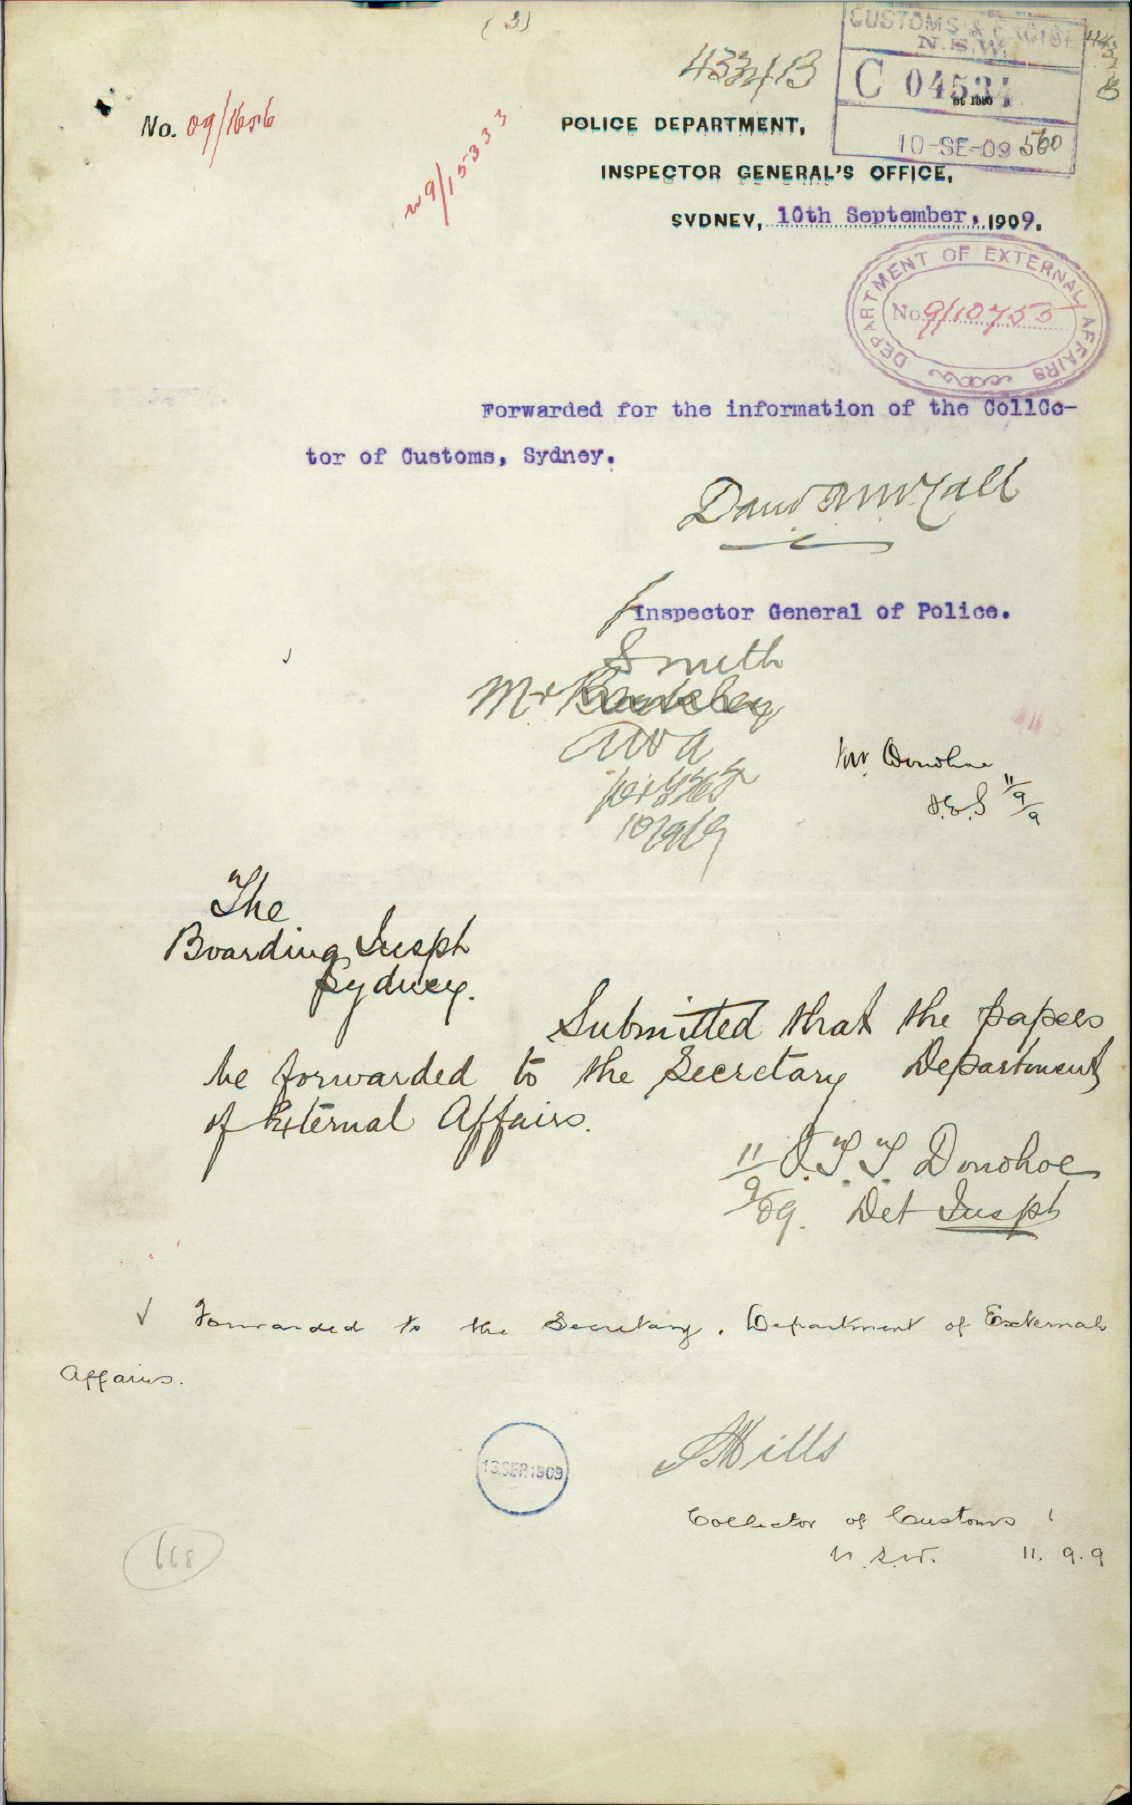 (3)
433413
CUSTOMS & EXCISE
N.S.W.
C 04534
10-SE-09 560
No. 09/1656
W9/15333
POLICE DEPARTMENT,
INSPECTOR GENERAL'S OFFICE,
SYDNEY, 10th September, 1909.
DEPARTMENT OF EXTERNAL AFFAIRS
No. 9/10755
Forwarded for the information of the CollCc-
tor of Customs, Sydney.
Inspector General of Police.
Smith
Mr
Mr. Donohoe
11/9/9
The
Boarding Inspt
Sydney.
Submitted that the papers
be forwarded to the Secretary Department
of External Affairs.
11/9/09. J.T.T. Donohoe
Det Inspt
Forwarded to the Secretary. Department of External
Affairs.
13.SEP.1909
Mills
Collector of Customs
N.S.W. 11.9.9